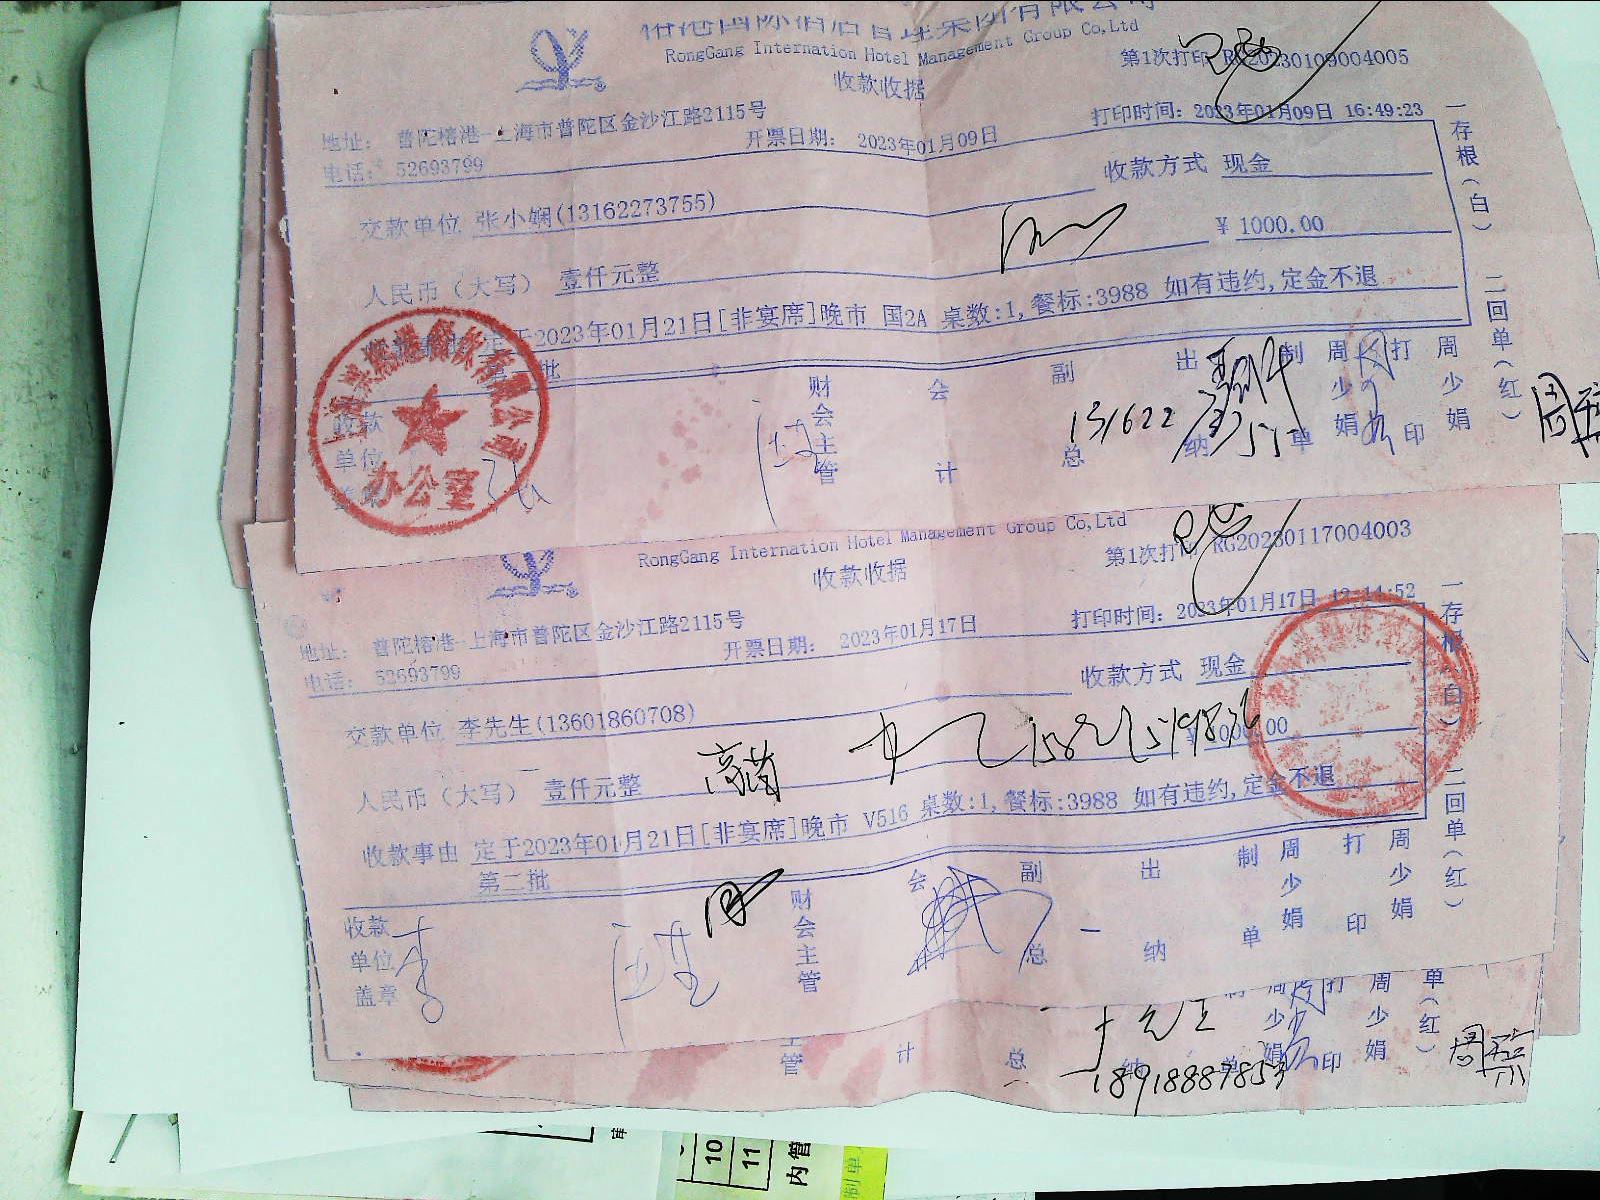 榕港国际酒店管理集团有限公司
RongGang Internation Hotel Management Group Co,Ltd
收款收据
第1次打印 RG20230109004005
地址: 普陀榕港-上海市普陀区金沙江路2115号
开票日期: 2023年01月09日
打印时间: 2023年01月09日 16:49:23
电话: 52693799
收款方式 现金
交款单位 张小娴(13162273755)
¥ 1000.00
人民币（大写） 壹仟元整
定于2023年01月21日[非宴席]晚市 国2A 桌数:1, 餐标:3988 如有违约, 定金不退
批
收款单位
办公室
财会主管
会计
副总
出纳
制单
周少娟
打印
周少娟
131622
一存根(白) 二回单(红)
RongGang Internation Hotel Management Group Co,Ltd
收款收据
第1次打印 RG20230117004003
地址: 普陀榕港-上海市普陀区金沙江路2115号
开票日期: 2023年01月17日
打印时间: 2023年01月17日
电话: 52693799
收款方式 现金
交款单位 李先生(13601860708)
人民币（大写） 壹仟元整
收款事由 定于2023年01月21日[非宴席]晚市 V516 桌数:1, 餐标:3988 如有违约, 定金不退
第二批
收款单位盖章
李
财会主管
会
副总
出纳
制单
周少娟
打印
周少娟
一存根(白) 二回单(红)
主管
计
总
纳
单
印
周少娟
单(红)
18918887853
10
11
内管
制单